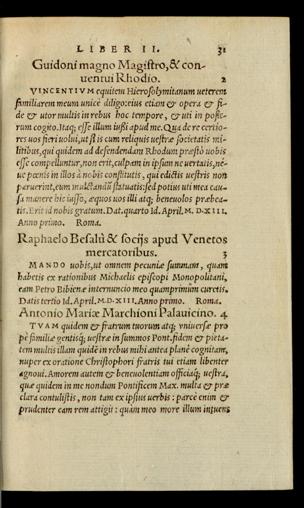 LIBER II. 31
Guidoni magno Magistro, & con
uentui Rhodio. 2
VINCENTIVM equitem Hierosolymitanum ueterem
familiarem meum unicè diligo: eius etiam & opera & fi-
de & utor multis in rebus hoc tempore, & uti in poste-
rum cogito. Itaq; esse illum iussi apud me. Qua de re certio-
res uos fieri uolui, ut si is cum reliquis uestræ societatis mi-
litibus, qui quidem ad defendendam Rhodum præsto uobis
esse compelluntur, non erit, culpam in ipsum ne uertatis, né-
ue pœnis in illos à nobis constitutis, qui edictis uestris non
paruerint, eum mulctandũ statuatis: sed potius uti mea cau-
sa manere hic iusso, æquos uos illi atq; beneuolos præbea-
tis. Erit id nobis gratum. Dat. quarto Id. April. M.D.XIII.
Anno primo. Roma.
Raphaelo Besalú & socijs apud Venetos
mercatoribus. 3
MANDO uobis, ut omnem pecuniæ summam, quam
habetis ex rationibus Michaelis episcopi Monopolitani,
eam Petro Bibienæ internuncio meo quamprimum curetis.
Datis tertio Id. April. M.D.XIII. Anno primo. Roma.
Antonio Mariæ Marchioni Palauicino. 4
TVAM quidem & fratrum tuorum atq; vniuersæ pro
pè familiæ gentisq; uestræ in summos Pont. fidem & pie-
tatem multis illam quidē in rebus mihi antea planè cognitam,
nuper ex oratione Christophori fratris tui etiam libenter
agnoui. Amorem autem & beneuolentiam officiaq; uestra,
quæ quidem in me nondum Pontificem Max. multa & præ
clara contulistis, non tam ex ipsius uerbis: parcè enim &
prudenter eam rem attigit: quàm meo more illum intuens